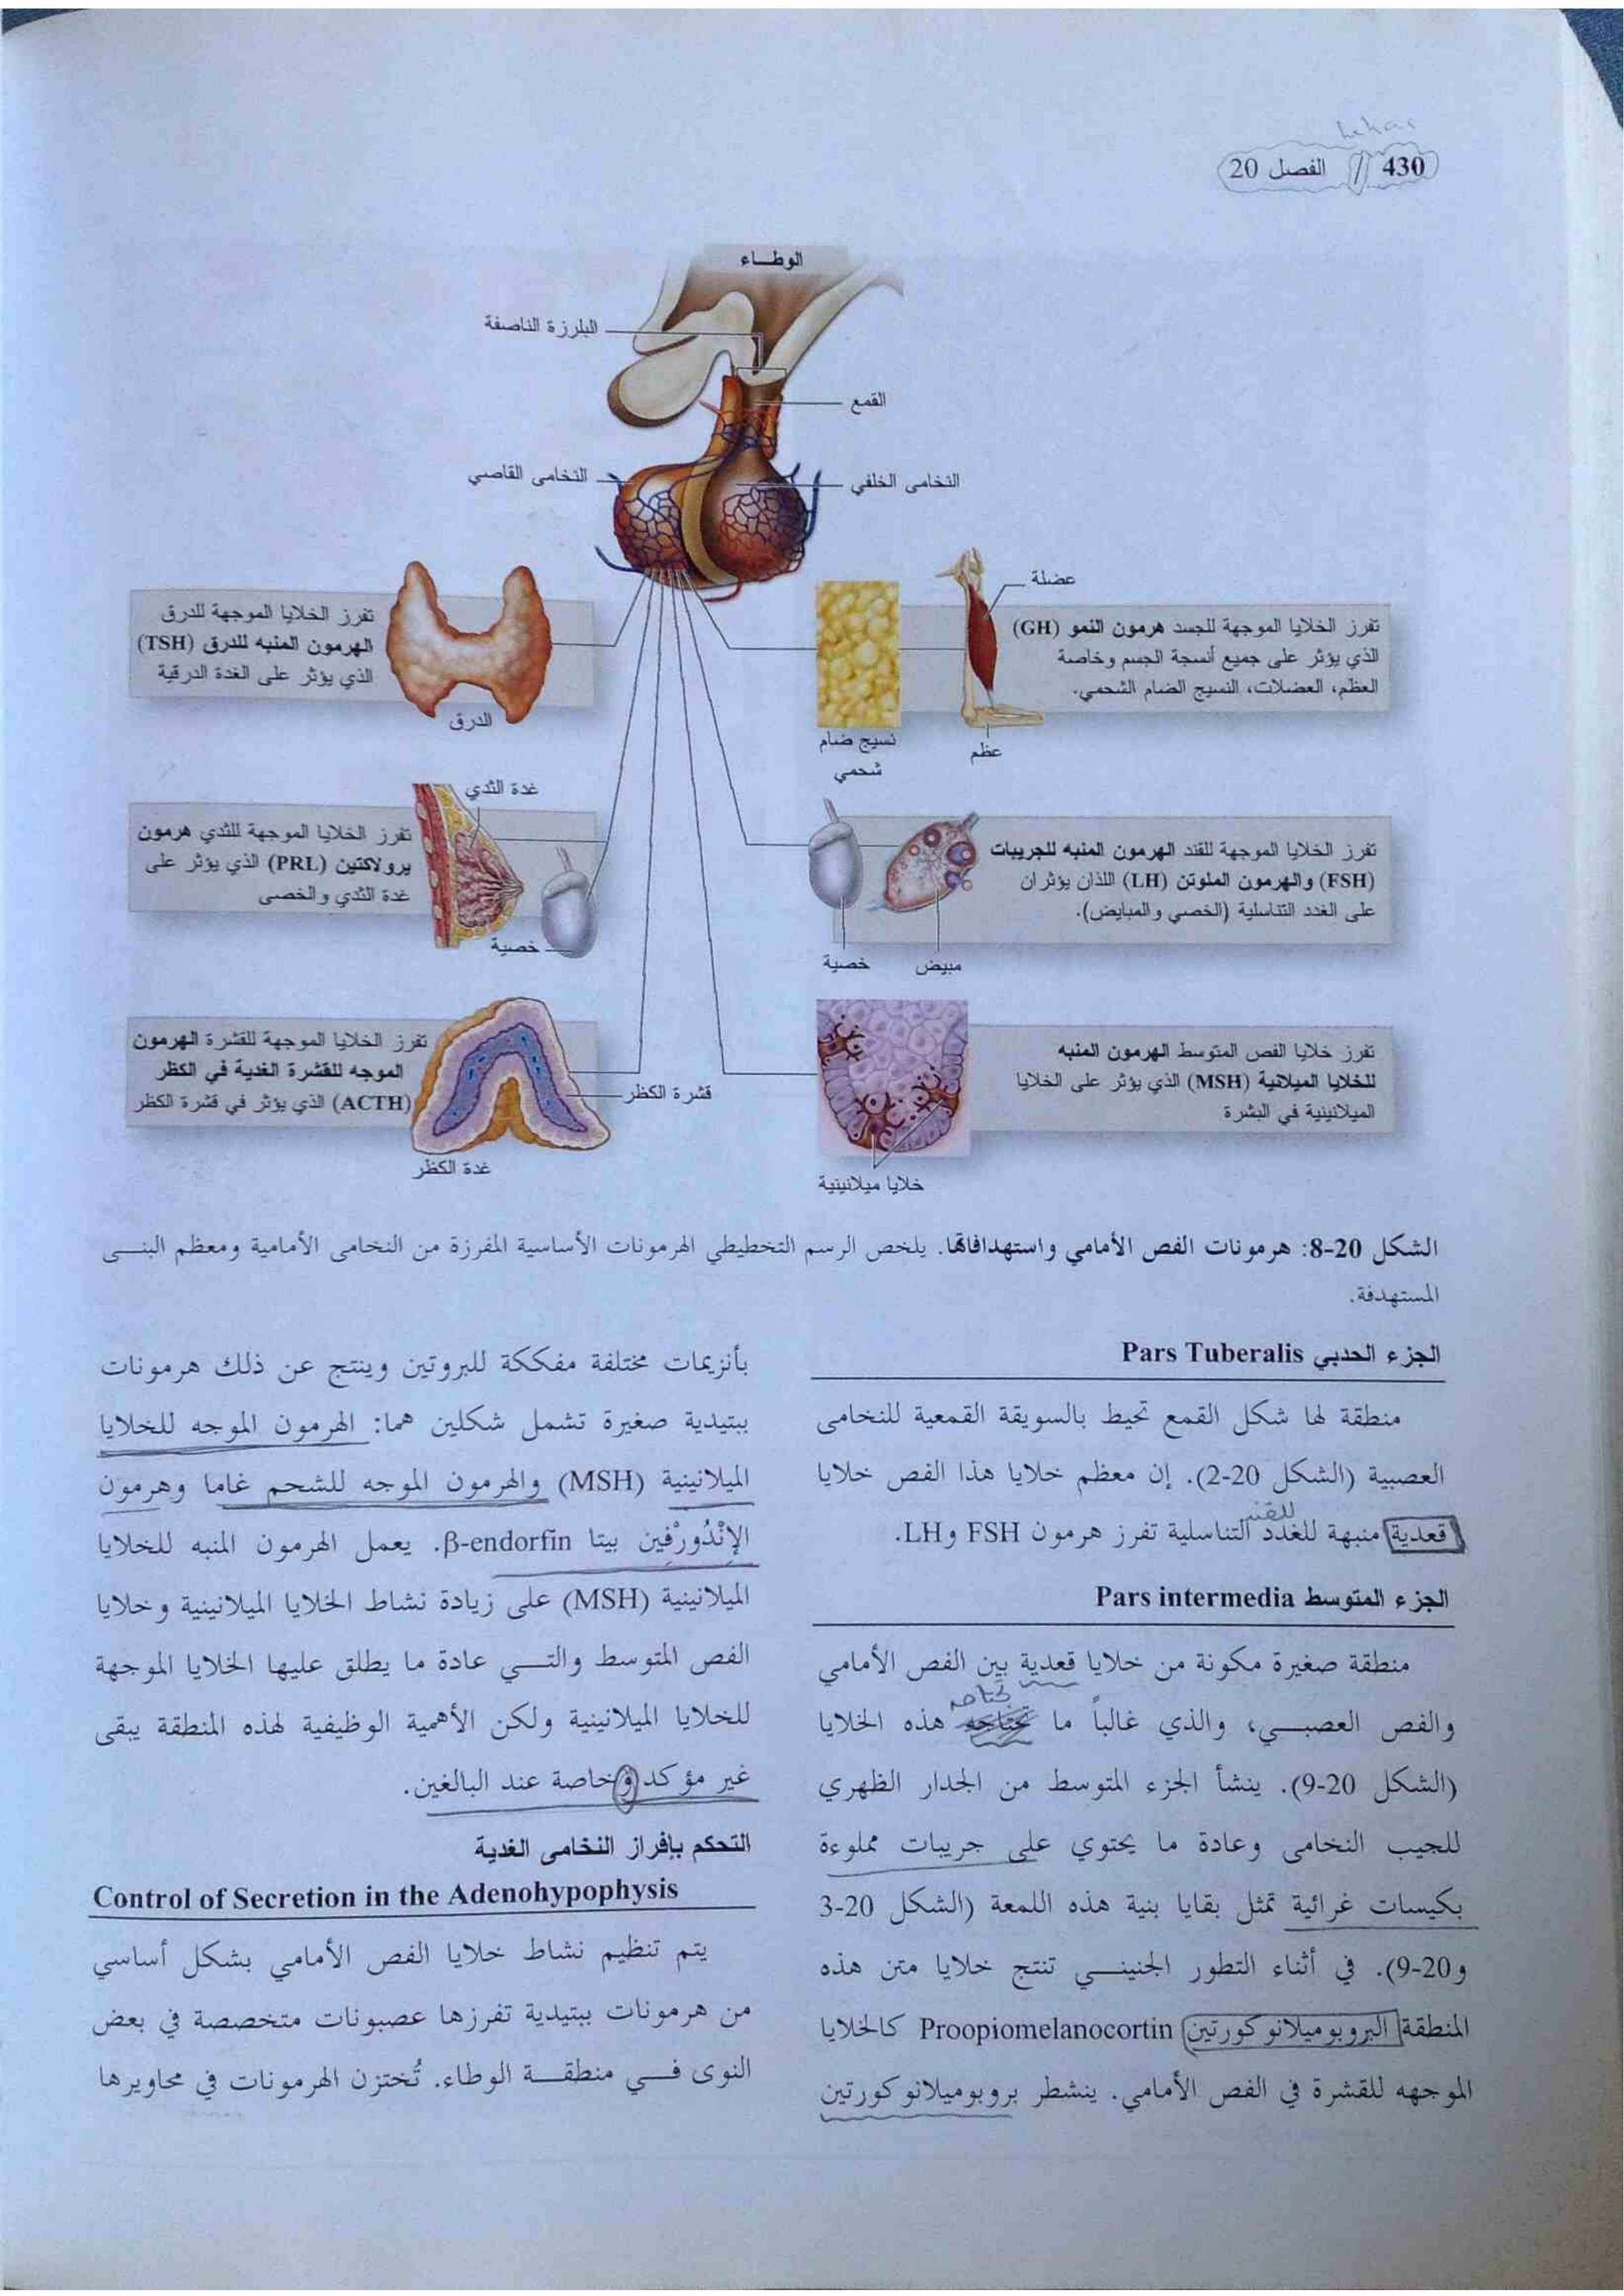 430 / الفصل 20
الوطـاء
البارزة الناصفة
القمع
النخامى القاصي
النخامى الخلفي
تفرز الخلايا الموجهة للدرق
الهرمون المنبه للدرق (TSH)
الذي يؤثر على الغدة الدرقية
الدرق
عضلة
تفرز الخلايا الموجهة للجسد هرمون النمو (GH)
الذي يؤثر على جميع أنسجة الجسم وخاصة
العظم، العضلات، النسيج الضام الشحمي.
نسيج ضام
شحمي
عظم
غدة الثدي
تفرز الخلايا الموجهة للثدي هرمون
برولاكتين (PRL) الذي يؤثر على
غدة الثدي والخصى
خصية
تفرز الخلايا الموجهة للقند الهرمون المنبه للجريبات
(FSH) والهرمون الملوتن (LH) اللذان يؤثران
على الغدد التناسلية (الخصي والمبايض).
خصية
مبيض
تفرز الخلايا الموجهة للقشرة الهرمون
الموجه للقشرة الغدية في الكظر
(ACTH) الذي يؤثر في قشرة الكظر
قشرة الكظر
غدة الكظر
تفرز خلايا الفص المتوسط الهرمون المنبه
للخلايا الميلانية (MSH) الذي يؤثر على الخلايا
الميلانينية في البشرة
خلايا ميلانينية
الشكل 20-8: هرمونات الفص الأمامي واستهدافاتها. يلخص الرسم التخطيطي الهرمونات الأساسية المفرزة من النخامى الأمامية ومعظم البنـى
المستهدفة.
الجزء الحدبي Pars Tuberalis
منطقة لها شكل القمع تحيط بالسويقة القمعية للنخامى
العصبية (الشكل 20-2). إن معظم خلايا هذا الفص خلايا
للقند
قعدية منبهة للغدد التناسلية تفرز هرمون FSH وLH.
الجزء المتوسط Pars intermedia
منطقة صغيرة مكونة من خلايا قعدية بين الفص الأمامي
والفص العصبـي، والذي غالباً ما تجتاحه هذه الخلايا
(الشكل 20-9). ينشأ الجزء المتوسط من الجدار الظهري
للجيب النخامى وعادة ما يحتوي على جريبات مملوءة
بكيسات غرائية تمثل بقايا بنية هذه اللمعة (الشكل 20-3
و20-9). في أثناء التطور الجنينـي تنتج خلايا متن هذه
المنطقة البروبوميلانوكورتين Proopiomelanocortin كالخلايا
الموجهه للقشرة في الفص الأمامي. ينشطر بروبوميلانوكورتين
بأنزيمات مختلفة مفككة للبروتين وينتج عن ذلك هرمونات
ببتيدية صغيرة تشمل شكلين هما: الهرمون الموجه للخلايا
الميلانينية (MSH) والهرمون الموجه للشحم غاما وهرمون
الإنْدُورْفين بيتا β-endorfin. يعمل الهرمون المنبه للخلايا
الميلانينية (MSH) على زيادة نشاط الخلايا الميلانينية وخلايا
الفص المتوسط والتـي عادة ما يطلق عليها الخلايا الموجهة
للخلايا الميلانينية ولكن الأهمية الوظيفية لهذه المنطقة يبقى
غير مؤكد وخاصة عند البالغين.
التحكم بإفراز النخامى الغدية
Control of Secretion in the Adenohypophysis
يتم تنظيم نشاط خلايا الفص الأمامي بشكل أساسي
من هرمونات ببتيدية تفرزها عصبونات متخصصة في بعض
النوى فـي منطقـة الوطاء. تُختزن الهرمونات في محاويرها